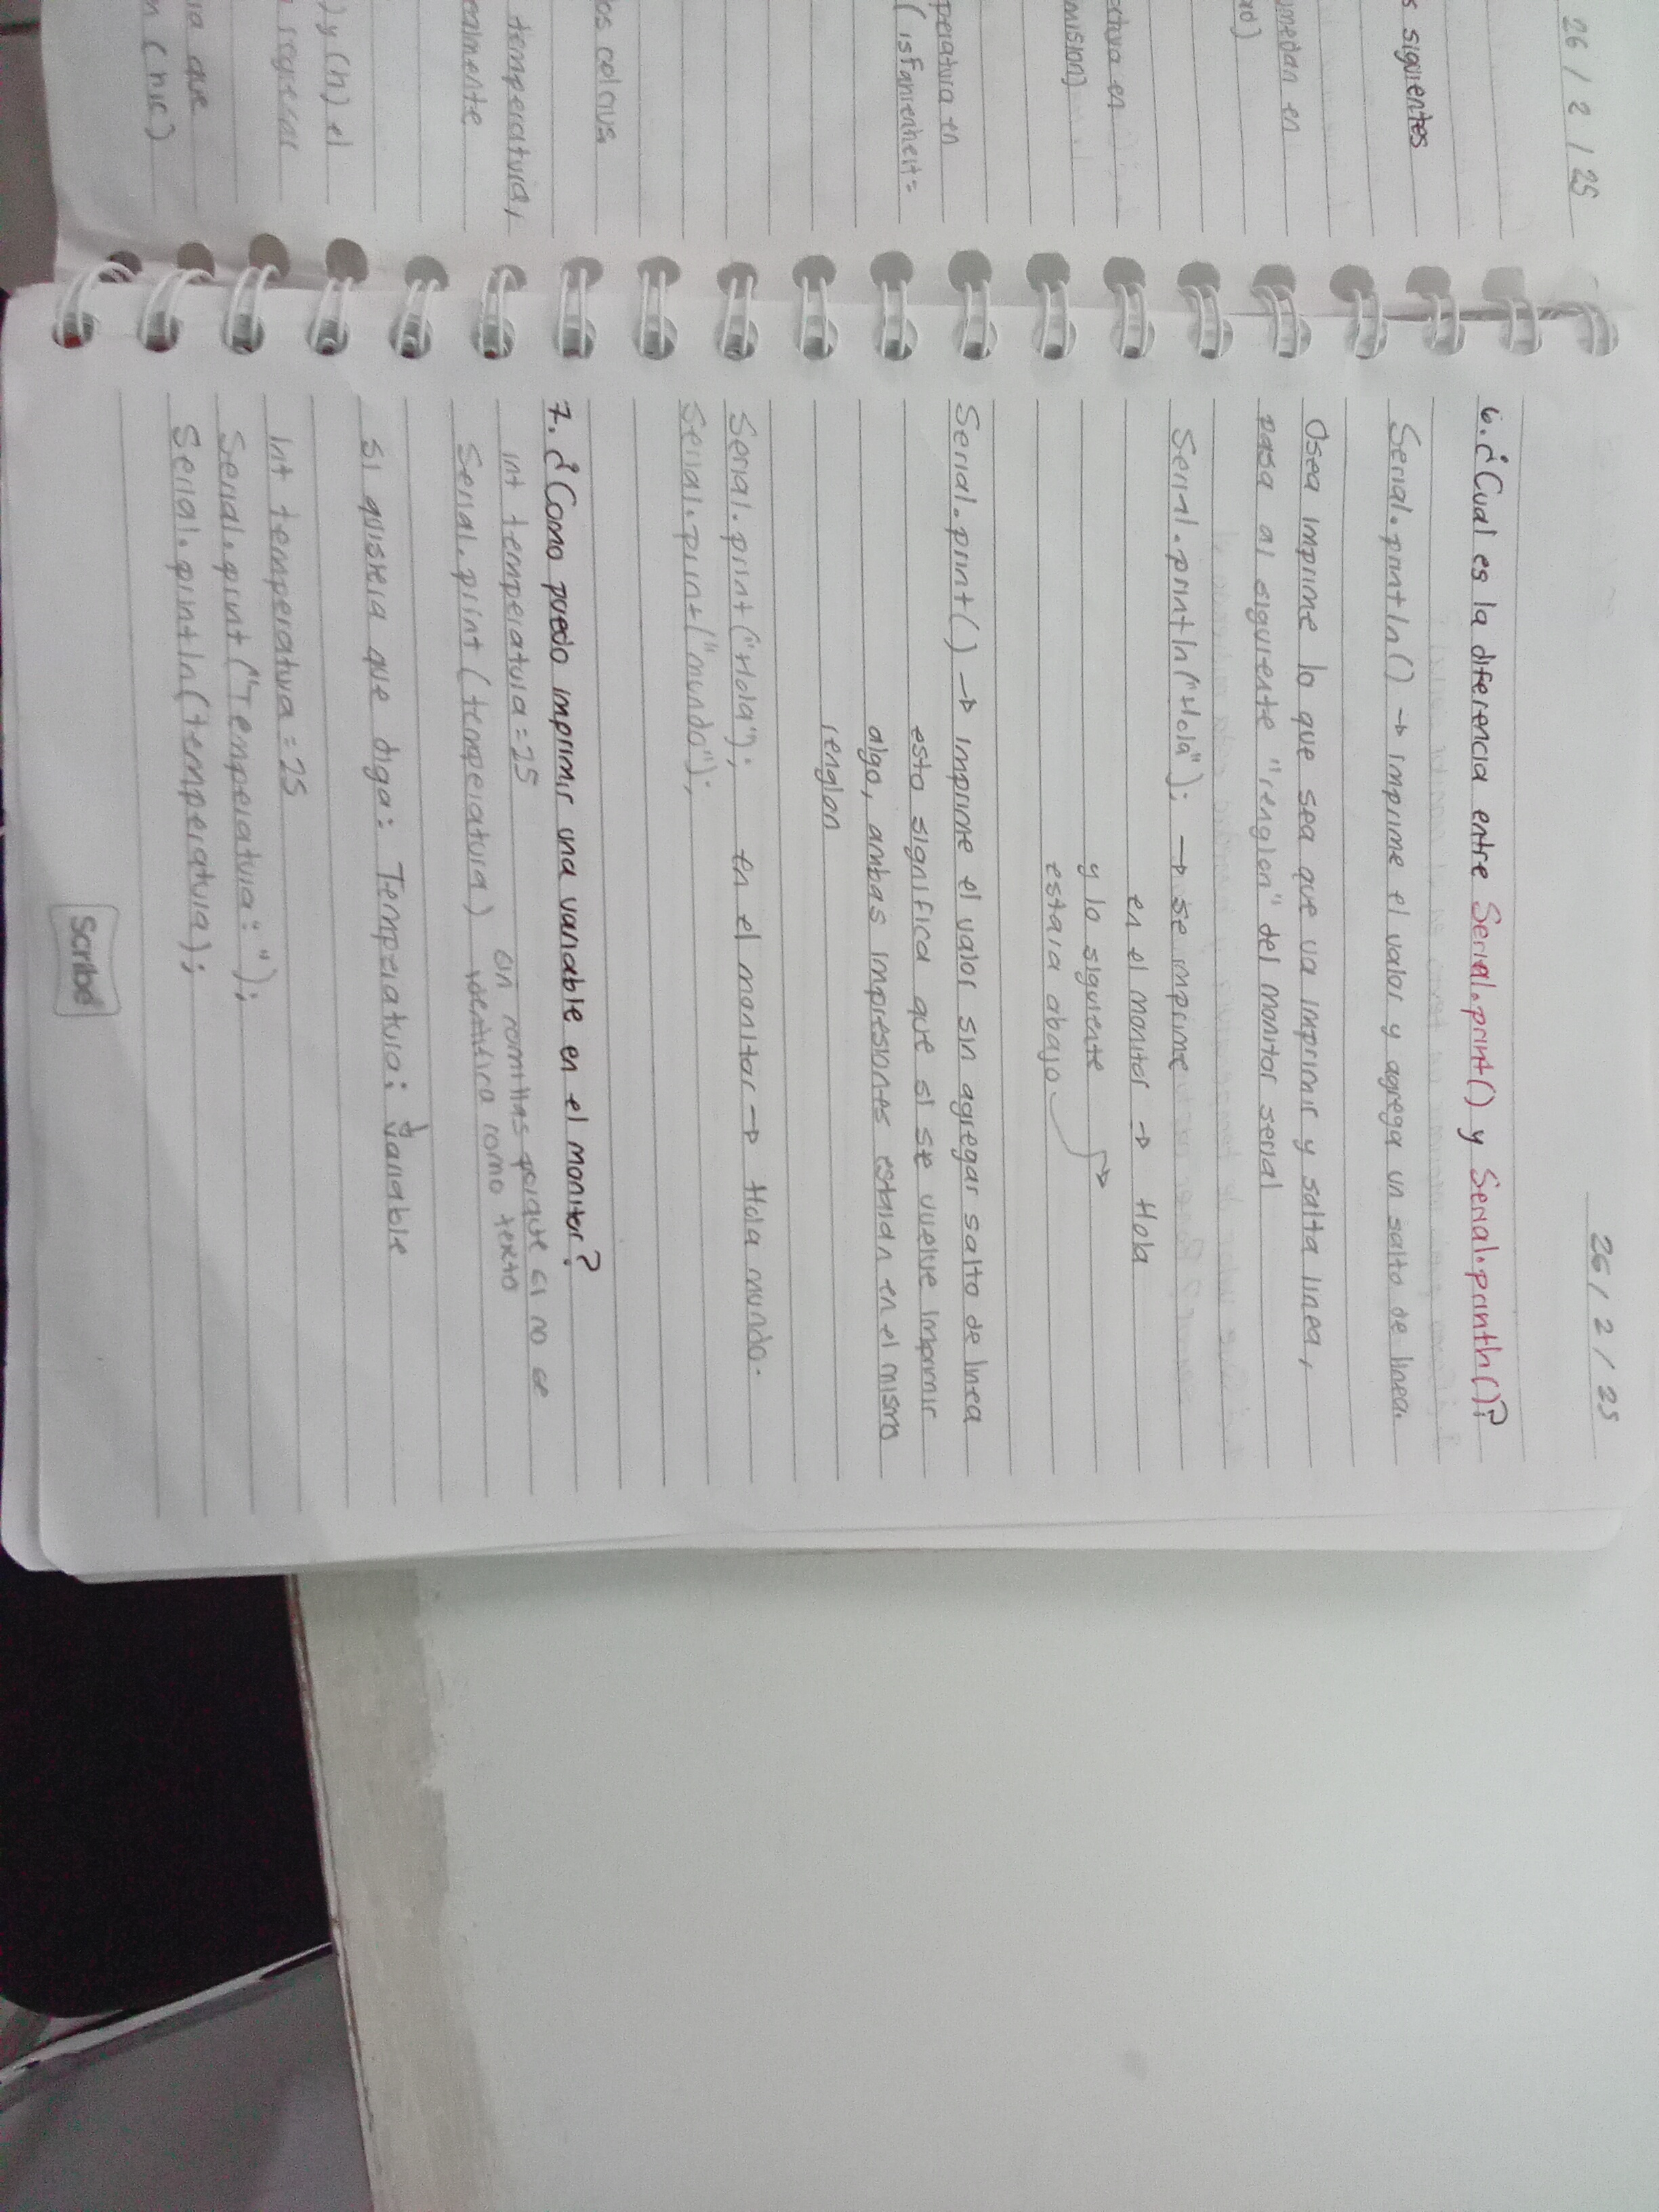 26 / 2 / 25
s siguientes
medan en
ad)
ctiva en
mision)
peratura en
( isFahrenheit =
os celcius
temperatura,
ealmente
) y (h) el
regresar
ia que
n ( hic )
26 / 2 / 25
6. ¿Cual es la diferencia entre Serial.print() y Serial.println()?
Serial.println() → imprime el valor y agrega un salto de linea.
Osea imprime lo que sea que va imprimir y salta linea,
pasa al siguiente "renglon" del monitor serial
Serial.println("Hola"); → se imprime
en el monitor → Hola
y lo siguiente
estara abajo
Serial.print() → imprime el valor sin agregar salto de linea
esto significa que si se vuelve imprimir
algo, ambas impresiones estaran en el mismo
renglon
Serial.print("Hola"); en el monitor → Hola mundo.
Serial.print("mundo");
7. ¿Como puedo imprimir una variable en el monitor?
int temperatura = 25 sin comillas porque si no se
Serial.print (temperatura) identifica como texto
si quisiera que diga: Temperatura: variable
Int temperatura = 25
Serial.print ("Temperatura: ");
Serial.println(temperatura);
Scribe